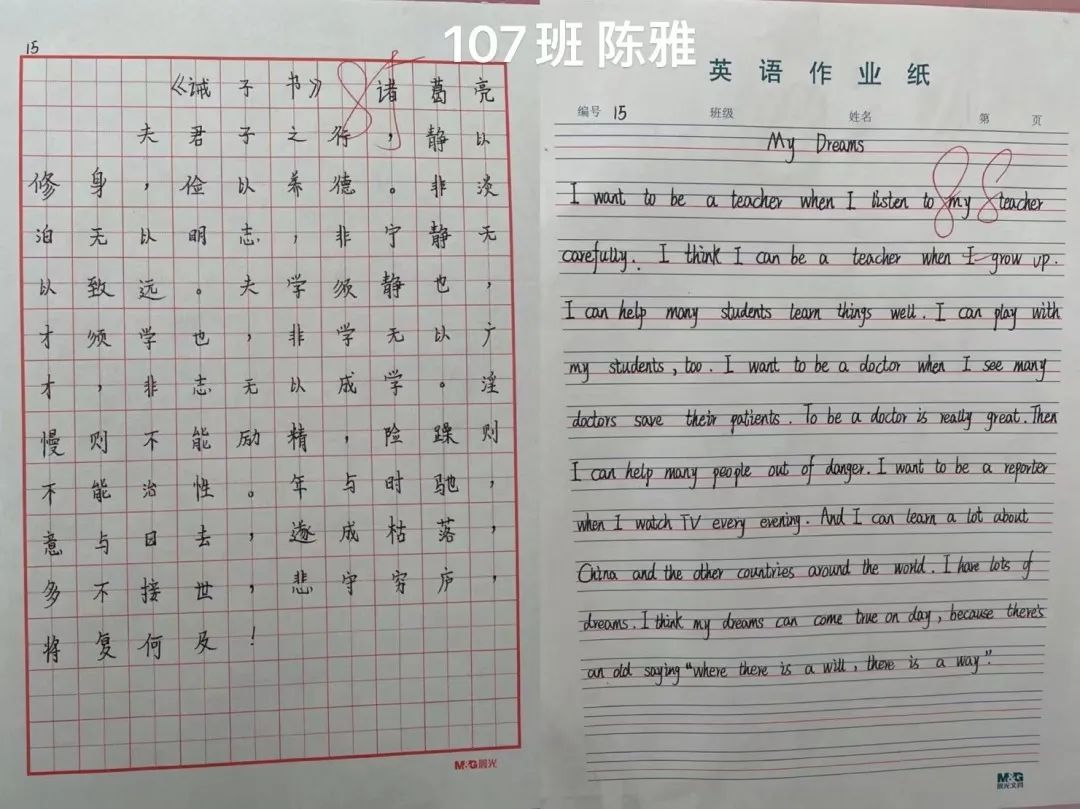 107班 陈雅
15
《诫子书》 诸葛亮
夫君子之行，静以
修身，俭以养德。非淡
泊无以明志，非宁静无
以致远。夫学须静也，
才须学也，非学无以广
才，非志无以成学。淫
慢则不能励精，险躁则
不能治性。年与时驰，
意与日去，遂成枯落，
多不接世，悲守穷庐，
将复何及！
M&G晨光
英语作业纸
编号 15 班级 姓名 第 页
88
My Dreams
I want to be a teacher when I listen to my teacher
carefully. I think I can be a teacher when I grow up.
I can help many students learn things well. I can play with
my students, too. I want to be a doctor when I see many
doctors save their patients. To be a doctor is really great. Then
I can help many people out of danger. I want to be a reporter
when I watch TV every evening. And I can learn a lot about
China and the other countries around the world. I have lots of
dreams. I think my dreams can come true on day, because there's
an old saying "where there is a will, there is a way".
M&G
晨光文具